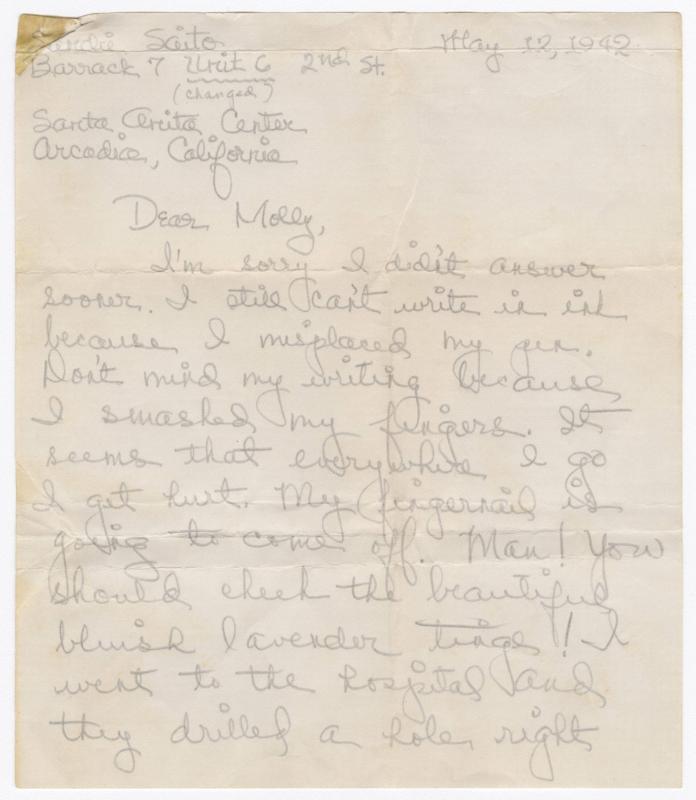 Sandie Saito
May 12, 1942
Barrack 7 Unit 6 2nd St.
(changed)
Santa Anita Center
Arcadia, California
Dear Molly,
I'm sorry I didn't answer
sooner. I still can't write in ink
because I misplaced my pen.
Don't mind my writing because
I smashed my fingers. It
seems that everywhere I go
I get hurt. My fingernail is
going to come off. Man! You
should check the beautiful
bluish lavender tinge! I
went to the hospital and
they drilled a hole right